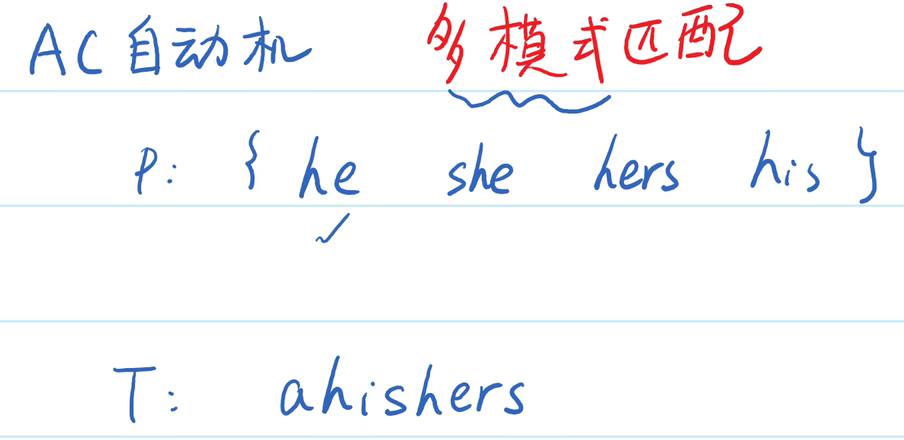 AC自动机 多模式匹配
P: { he she hers his }
T: ahishers